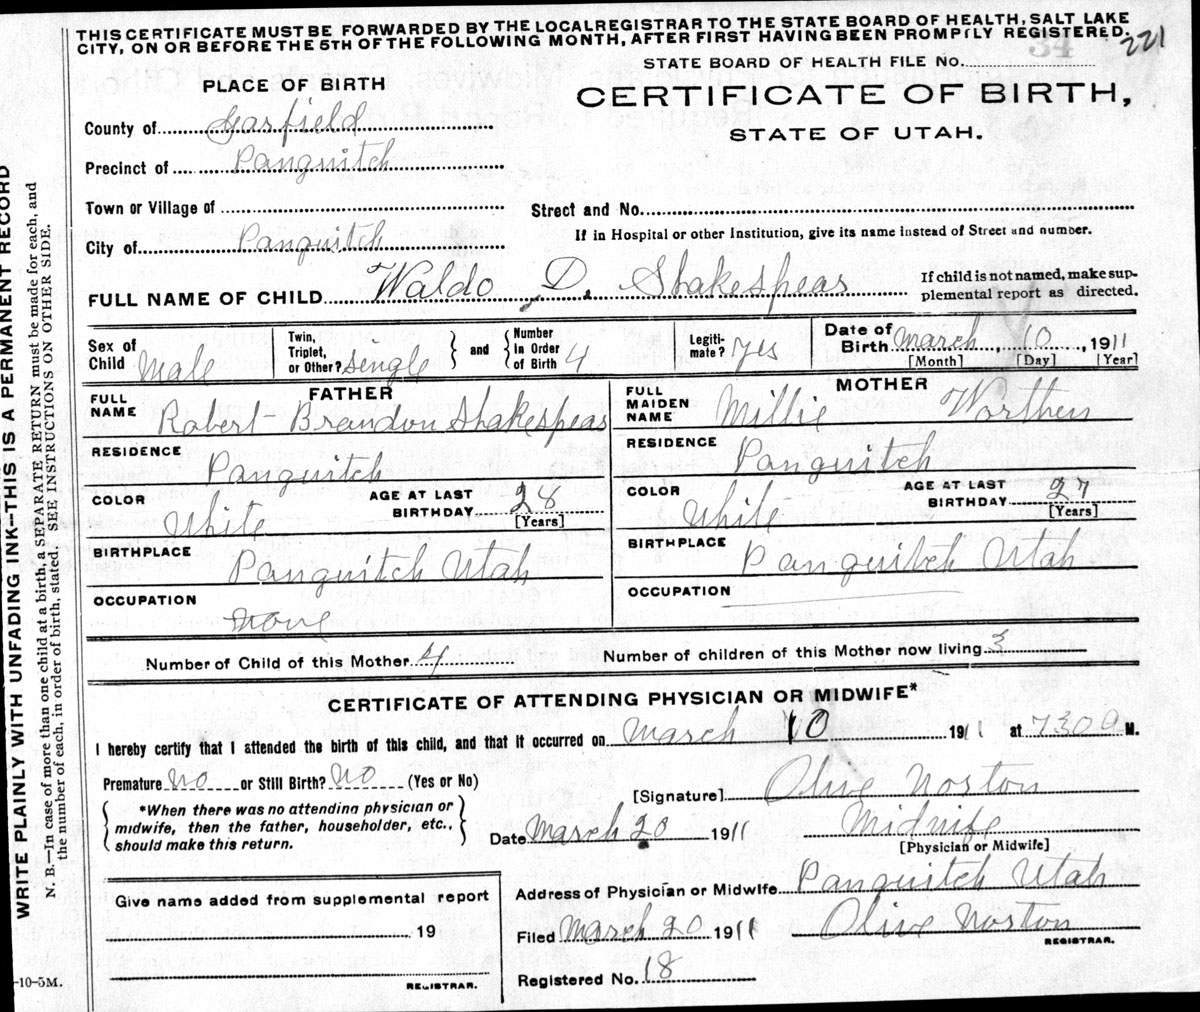 THIS CERTIFICATE MUST BE FORWARDED BY THE LOCAL REGISTRAR TO THE STATE BOARD OF HEALTH, SALT LAKE
CITY, ON OR BEFORE THE 5TH OF THE FOLLOWING MONTH, AFTER FIRST HAVING BEEN PROMPTLY REGISTERED.
221
34
STATE BOARD OF HEALTH FILE No.
PLACE OF BIRTH
CERTIFICATE OF BIRTH,
STATE OF UTAH.
County of Garfield
Precinct of Panguitch
Town or Village of
Street and No.
City of Panguitch
If in Hospital or other Institution, give its name instead of Street and number.
FULL NAME OF CHILD Waldo D. Shakespear
If child is not named, make sup-
plemental report as directed.
Sex of Child Male
Twin, Triplet, or Other? single
and
Number In Order of Birth 4
Legiti-mate? yes
Date of Birth March 10, 1911
[Month] [Day] [Year]
FATHER
FULL NAME Robert Brandon Shakespear
RESIDENCE Panguitch
COLOR White
AGE AT LAST BIRTHDAY 28
[Years]
BIRTHPLACE Panguitch Utah
OCCUPATION
None
MOTHER
FULL MAIDEN NAME Millie Worthen
RESIDENCE Panguitch
COLOR White
AGE AT LAST BIRTHDAY 27
[Years]
BIRTHPLACE Panguitch Utah
OCCUPATION
Number of Child of this Mother 4
Number of children of this Mother now living 3
CERTIFICATE OF ATTENDING PHYSICIAN OR MIDWIFE*
I hereby certify that I attended the birth of this child, and that it occurred on March 10 1911 at 730 a M.
Premature no or Still Birth? no (Yes or No)
[Signature] Olive Norton
*When there was no attending physician or
midwife, then the father, householder, etc.,
should make this return.
Date March 20 1911
Midwife
[Physician or Midwife]
Address of Physician or Midwife Panguitch Utah
Give name added from supplemental report
19
REGISTRAR.
Filed March 20 1911 Olive Norton
REGISTRAR.
Registered No. 18
WRITE PLAINLY WITH UNFADING INK--THIS IS A PERMANENT RECORD
N. B.—In case of more than one child at a birth, a SEPARATE RETURN must be made for each, and
the number of each, in order of birth, stated. SEE INSTRUCTIONS ON OTHER SIDE.
-10-5M.